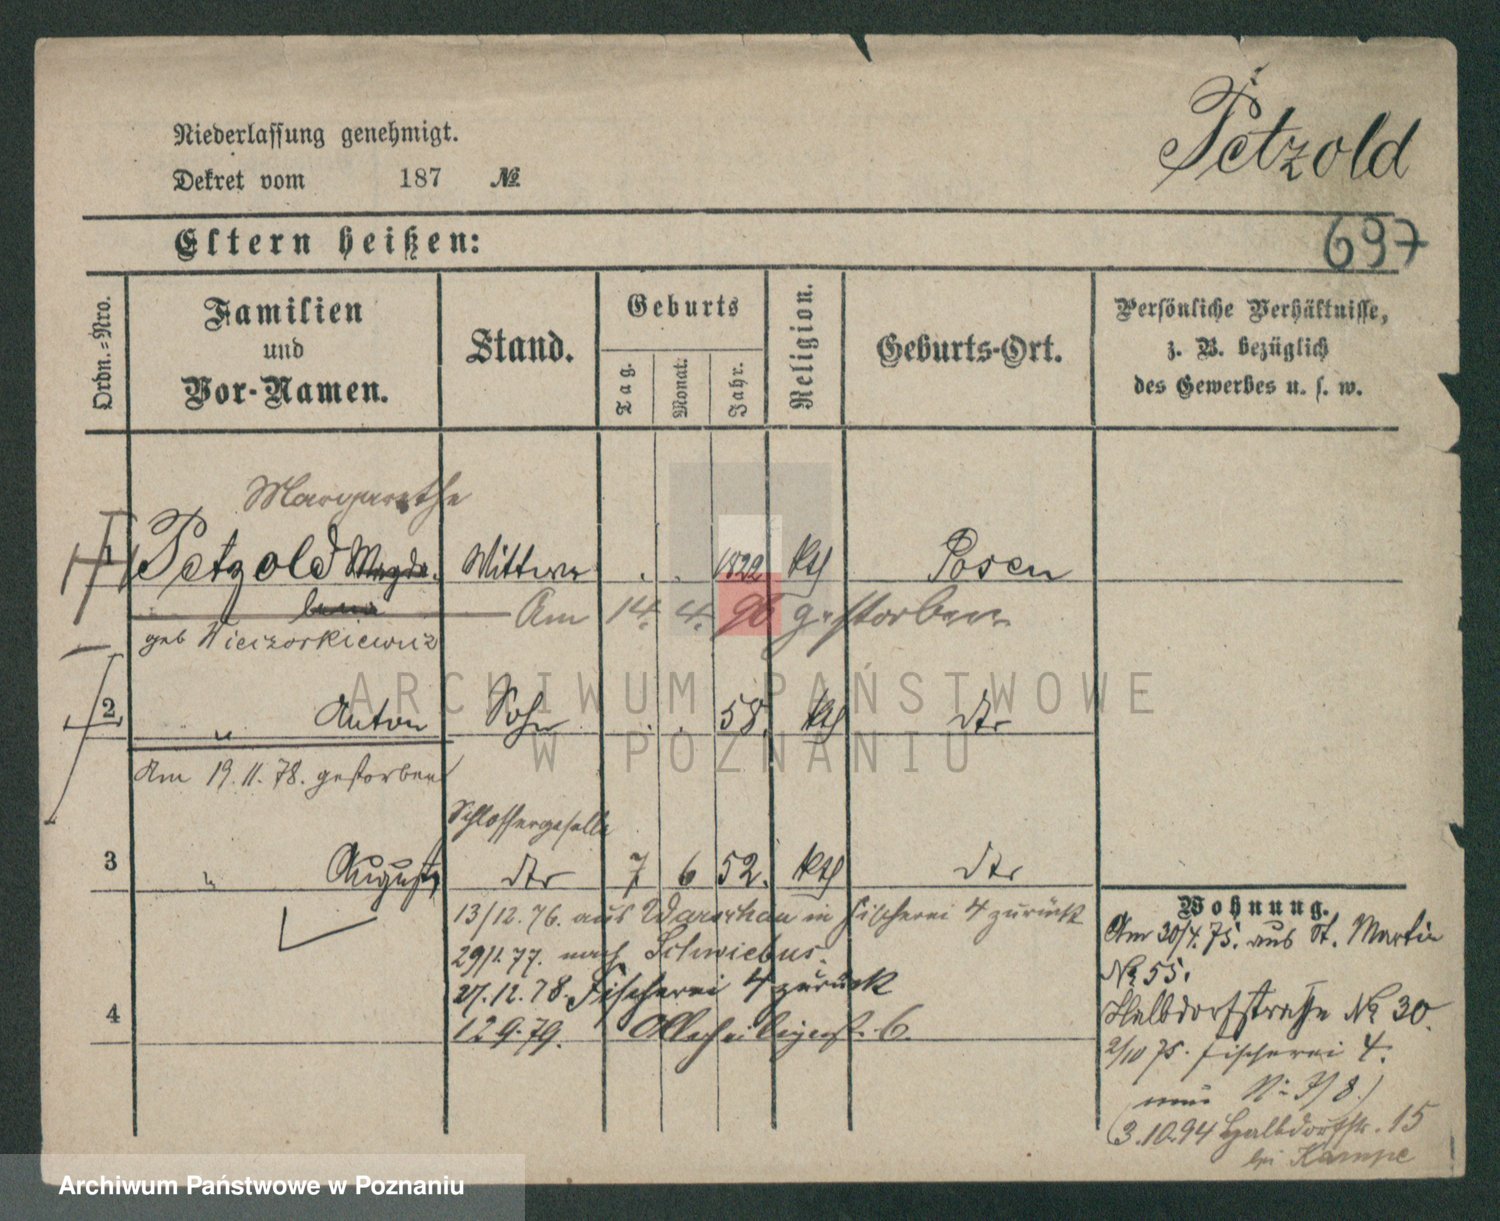 Petzold
Niederlassung genehmigt.
Dekret vom 187 №
697
Eltern heißen:
Ordn.=Nro.
Familien
und
Vor-Namen.
Stand.
Geburts
Tag.
Monat.
Jahr.
Religion.
Geburts-Ort.
Persönliche Verhältnisse,
z. B. bezüglich
des Gewerbes u. s. w.
Margarethe
1 Petzold Magda- Wittwe . . 1822 kth Posen
lena Am 14. 4. 96 gestorben
geb
2 " Anton Sohn . . 58. kth dto
Am 19.11.78. gestorben
Schlossergeselle
3 " August, dto 7 6 52. kth dto
13/12.76. aus Warschau in Fischerei 4 zurück
nach Schwiebus.
27.12.78. Fischerei 4 zurück
4
12.9.79. Allerheiligenst. 6.
Wohnung.
Am 30/4.75. aus St. Martin
№ 55.
Halbdorfstraße № 30.
2/10 75. Fischerei 4.
neue № 7/8.)
3.10.94 Halbdorfstr. 15
bei Kampe
ARCHIWUM PAŃSTWOWE
W POZNANIU
Archiwum Państwowe w Poznaniu